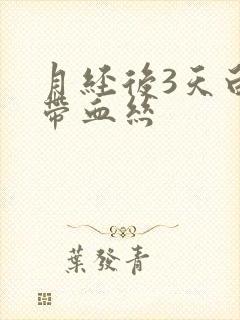 月經後3天白
帶血絲
葉發青